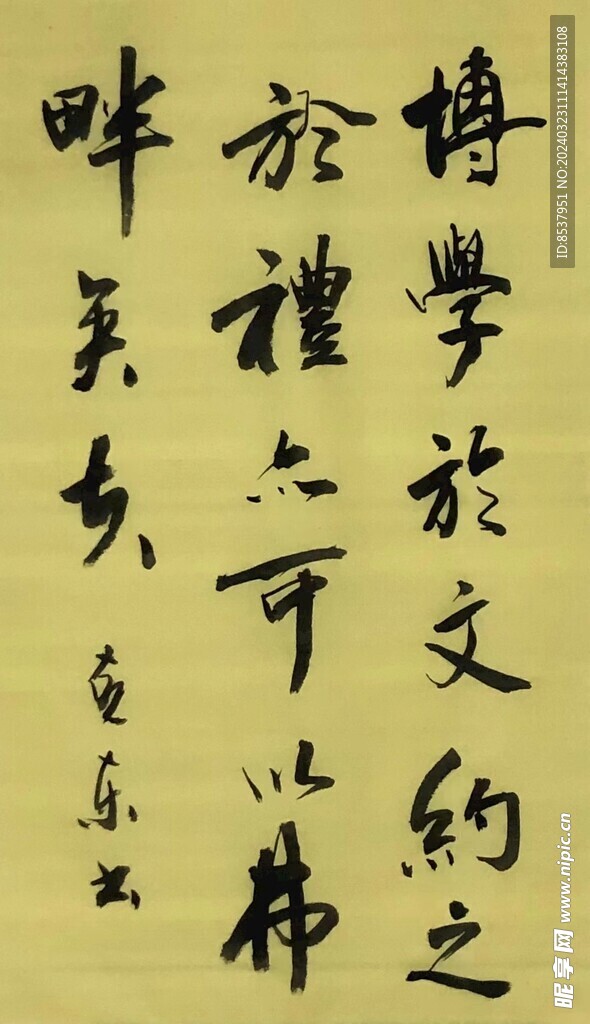 博學於文約之
於禮亦可以弗
畔矣夫
东书
ID:8537951 NO:20240323111414383108
昵享网 www.nipic.cn